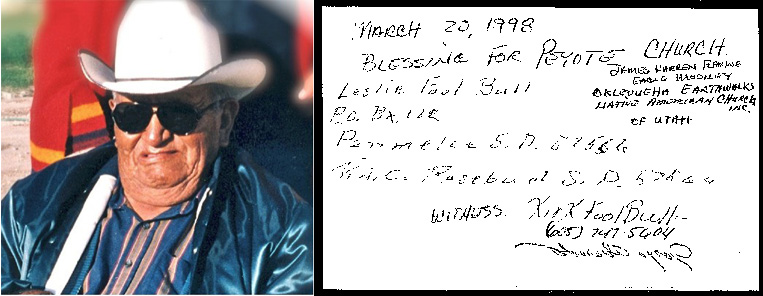 MARCH 20, 1998
BLESSING FOR PEYOTE CHURCH
JAMES WARREN FLAMING
EAGLE MOONEY
OKLEVUEHA EARTHWALKS
NATIVE AMERICAN CHURCH
INC.
OF UTAH
Leslie Fool Bull
P.O. Bx,
S. D.
Rosebud S. D.
WITNUSS. Kirk Fool Bull
(605) 747-5604